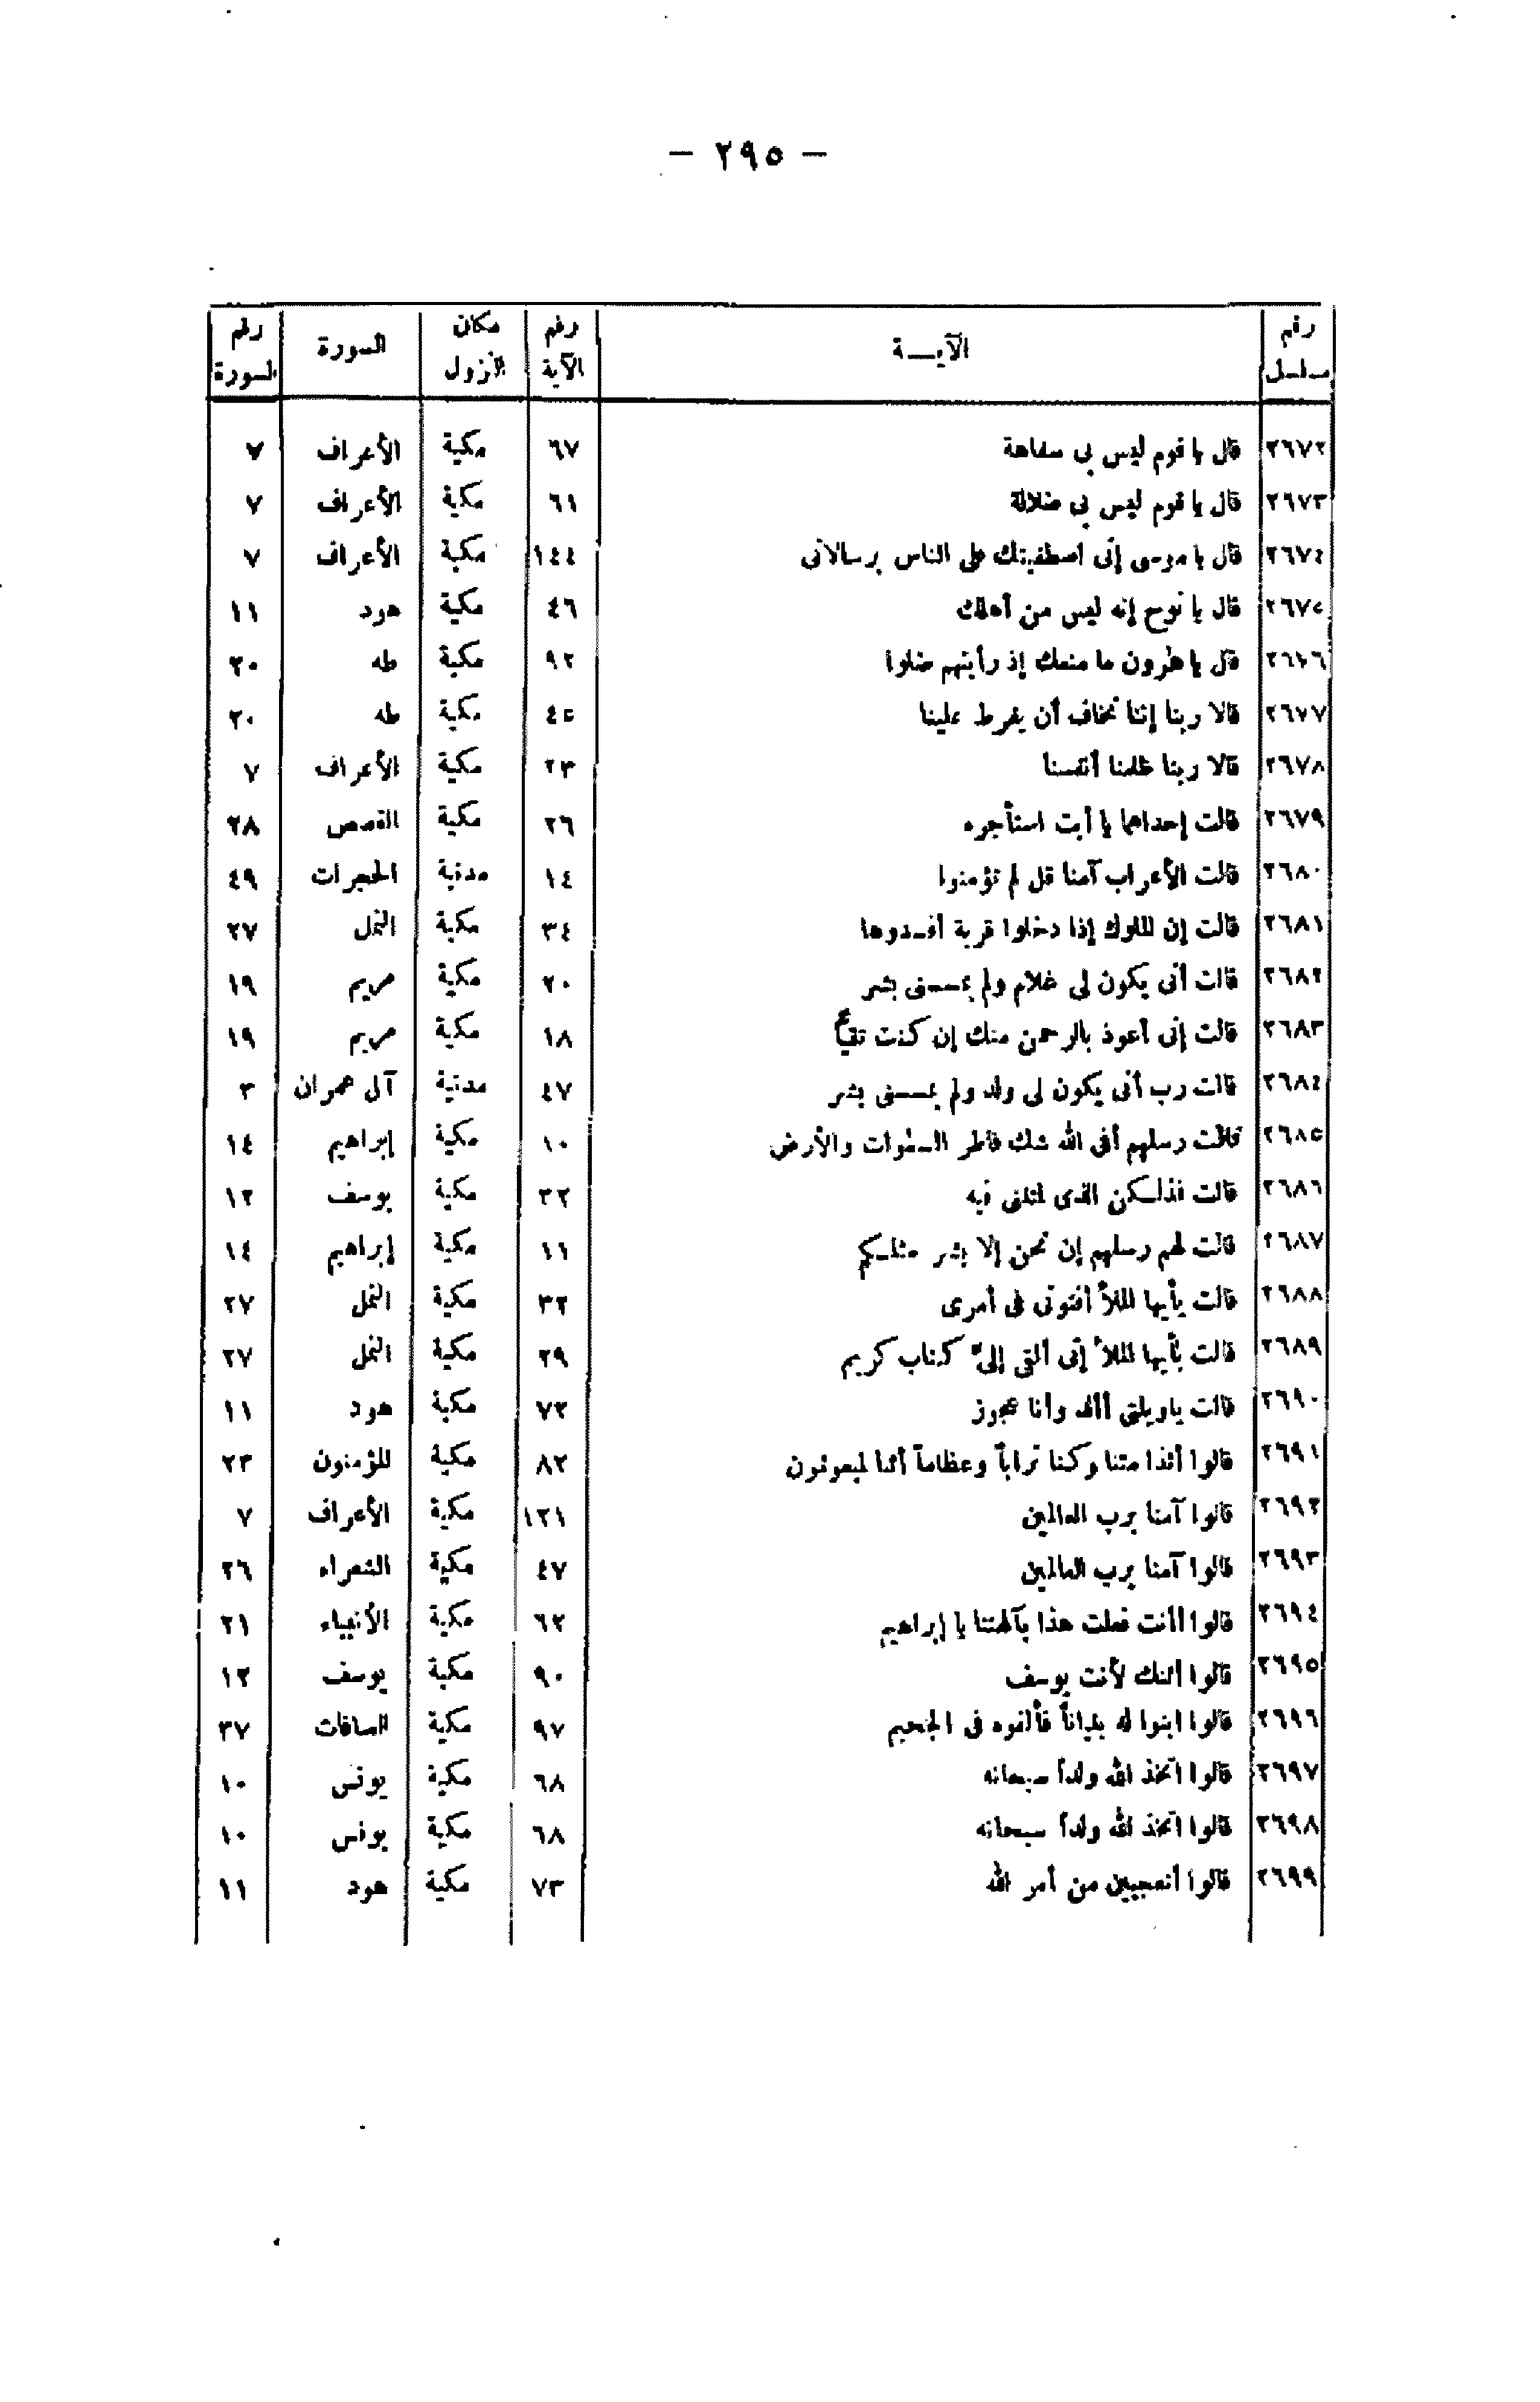 — ٢٩٥ —
رقم مسلسل | الآيـــة | رقم الآية | مكان النزول | السورة | رقم السورة
٢٦٧٢ | قال يا قوم ليس بى سفاهة | ٦٧ | مكية | الأعراف | ٧
٢٦٧٣ | قال يا قوم ليس بى ضلالة | ٦١ | مكية | الأعراف | ٧
٢٦٧٤ | قال يا موسى إنى اصطفيتك على الناس برسالاتى | ١٤٤ | مكية | الأعراف | ٧
٢٦٧٥ | قال يا نوح إنه ليس من أهلك | ٤٦ | مكية | هود | ١١
٢٦٧٦ | قال يا هٰرون ما منعك إذ رأيتهم ضلوا | ٩٢ | مكية | طه | ٢٠
٢٦٧٧ | قالا ربنا إننا نخاف أن يفرط علينا | ٤٥ | مكية | طه | ٢٠
٢٦٧٨ | قالا ربنا ظلمنا أنفسنا | ٢٣ | مكية | الأعراف | ٧
٢٦٧٩ | قالت إحداهما يا أبت استأجره | ٢٦ | مكية | القصص | ٢٨
٢٦٨٠ | قالت الأعراب آمنا قل لم تؤمنوا | ١٤ | مدنية | الحجرات | ٤٩
٢٦٨١ | قالت إن الملوك إذا دخلوا قرية أفسدوها | ٣٤ | مكية | النمل | ٢٧
٢٦٨٢ | قالت أنى يكون لى غلام ولم يمسسنى بشر | ٢٠ | مكية | مريم | ١٩
٢٦٨٣ | قالت إنى أعوذ بالرحمن منك إن كنت تقياً | ١٨ | مكية | مريم | ١٩
٢٦٨٤ | قالت رب أنى يكون لى ولد ولم يمسسنى بشر | ٤٧ | مدنية | آل عمران | ٣
٢٦٨٥ | قالت رسلهم أفى الله شك فاطر السمٰوات والأرض | ١٠ | مكية | إبراهيم | ١٤
٢٦٨٦ | قالت فذلكن الذى لمتننى فيه | ٣٢ | مكية | يوسف | ١٢
٢٦٨٧ | قالت لهم رسلهم إن نحن إلا بشر مثلكم | ١١ | مكية | إبراهيم | ١٤
٢٦٨٨ | قالت يأيها الملأ أفتونى فى أمرى | ٣٢ | مكية | النمل | ٢٧
٢٦٨٩ | قالت يأيها الملأ إنى ألقى إلىّ كتاب كريم | ٢٩ | مكية | النمل | ٢٧
٢٦٩٠ | قالت ياويلتى أألد وأنا عجوز | ٧٢ | مكية | هود | ١١
٢٦٩١ | قالوا أئذا متنا وكنا تراباً وعظاماً أئنا لمبعوثون | ٨٢ | مكية | المؤمنون | ٢٣
٢٦٩٢ | قالوا آمنا برب العالمين | ١٢١ | مكية | الأعراف | ٧
٢٦٩٣ | قالوا آمنا برب العالمين | ٤٧ | مكية | الشعراء | ٢٦
٢٦٩٤ | قالوا أأنت فعلت هذا بآلهتنا يا إبراهيم | ٦٢ | مكية | الأنبياء | ٢١
٢٦٩٥ | قالوا أئنك لأنت يوسف | ٩٠ | مكية | يوسف | ١٢
٢٦٩٦ | قالوا ابنوا له بنياناً فألقوه فى الجحيم | ٩٧ | مكية | الصافات | ٣٧
٢٦٩٧ | قالوا اتخذ الله ولداً سبحانه | ٦٨ | مكية | يونس | ١٠
٢٦٩٨ | قالوا اتخذ الله ولداً سبحانه | ٦٨ | مكية | يونس | ١٠
٢٦٩٩ | قالوا أتعجبين من أمر الله | ٧٣ | مكية | هود | ١١